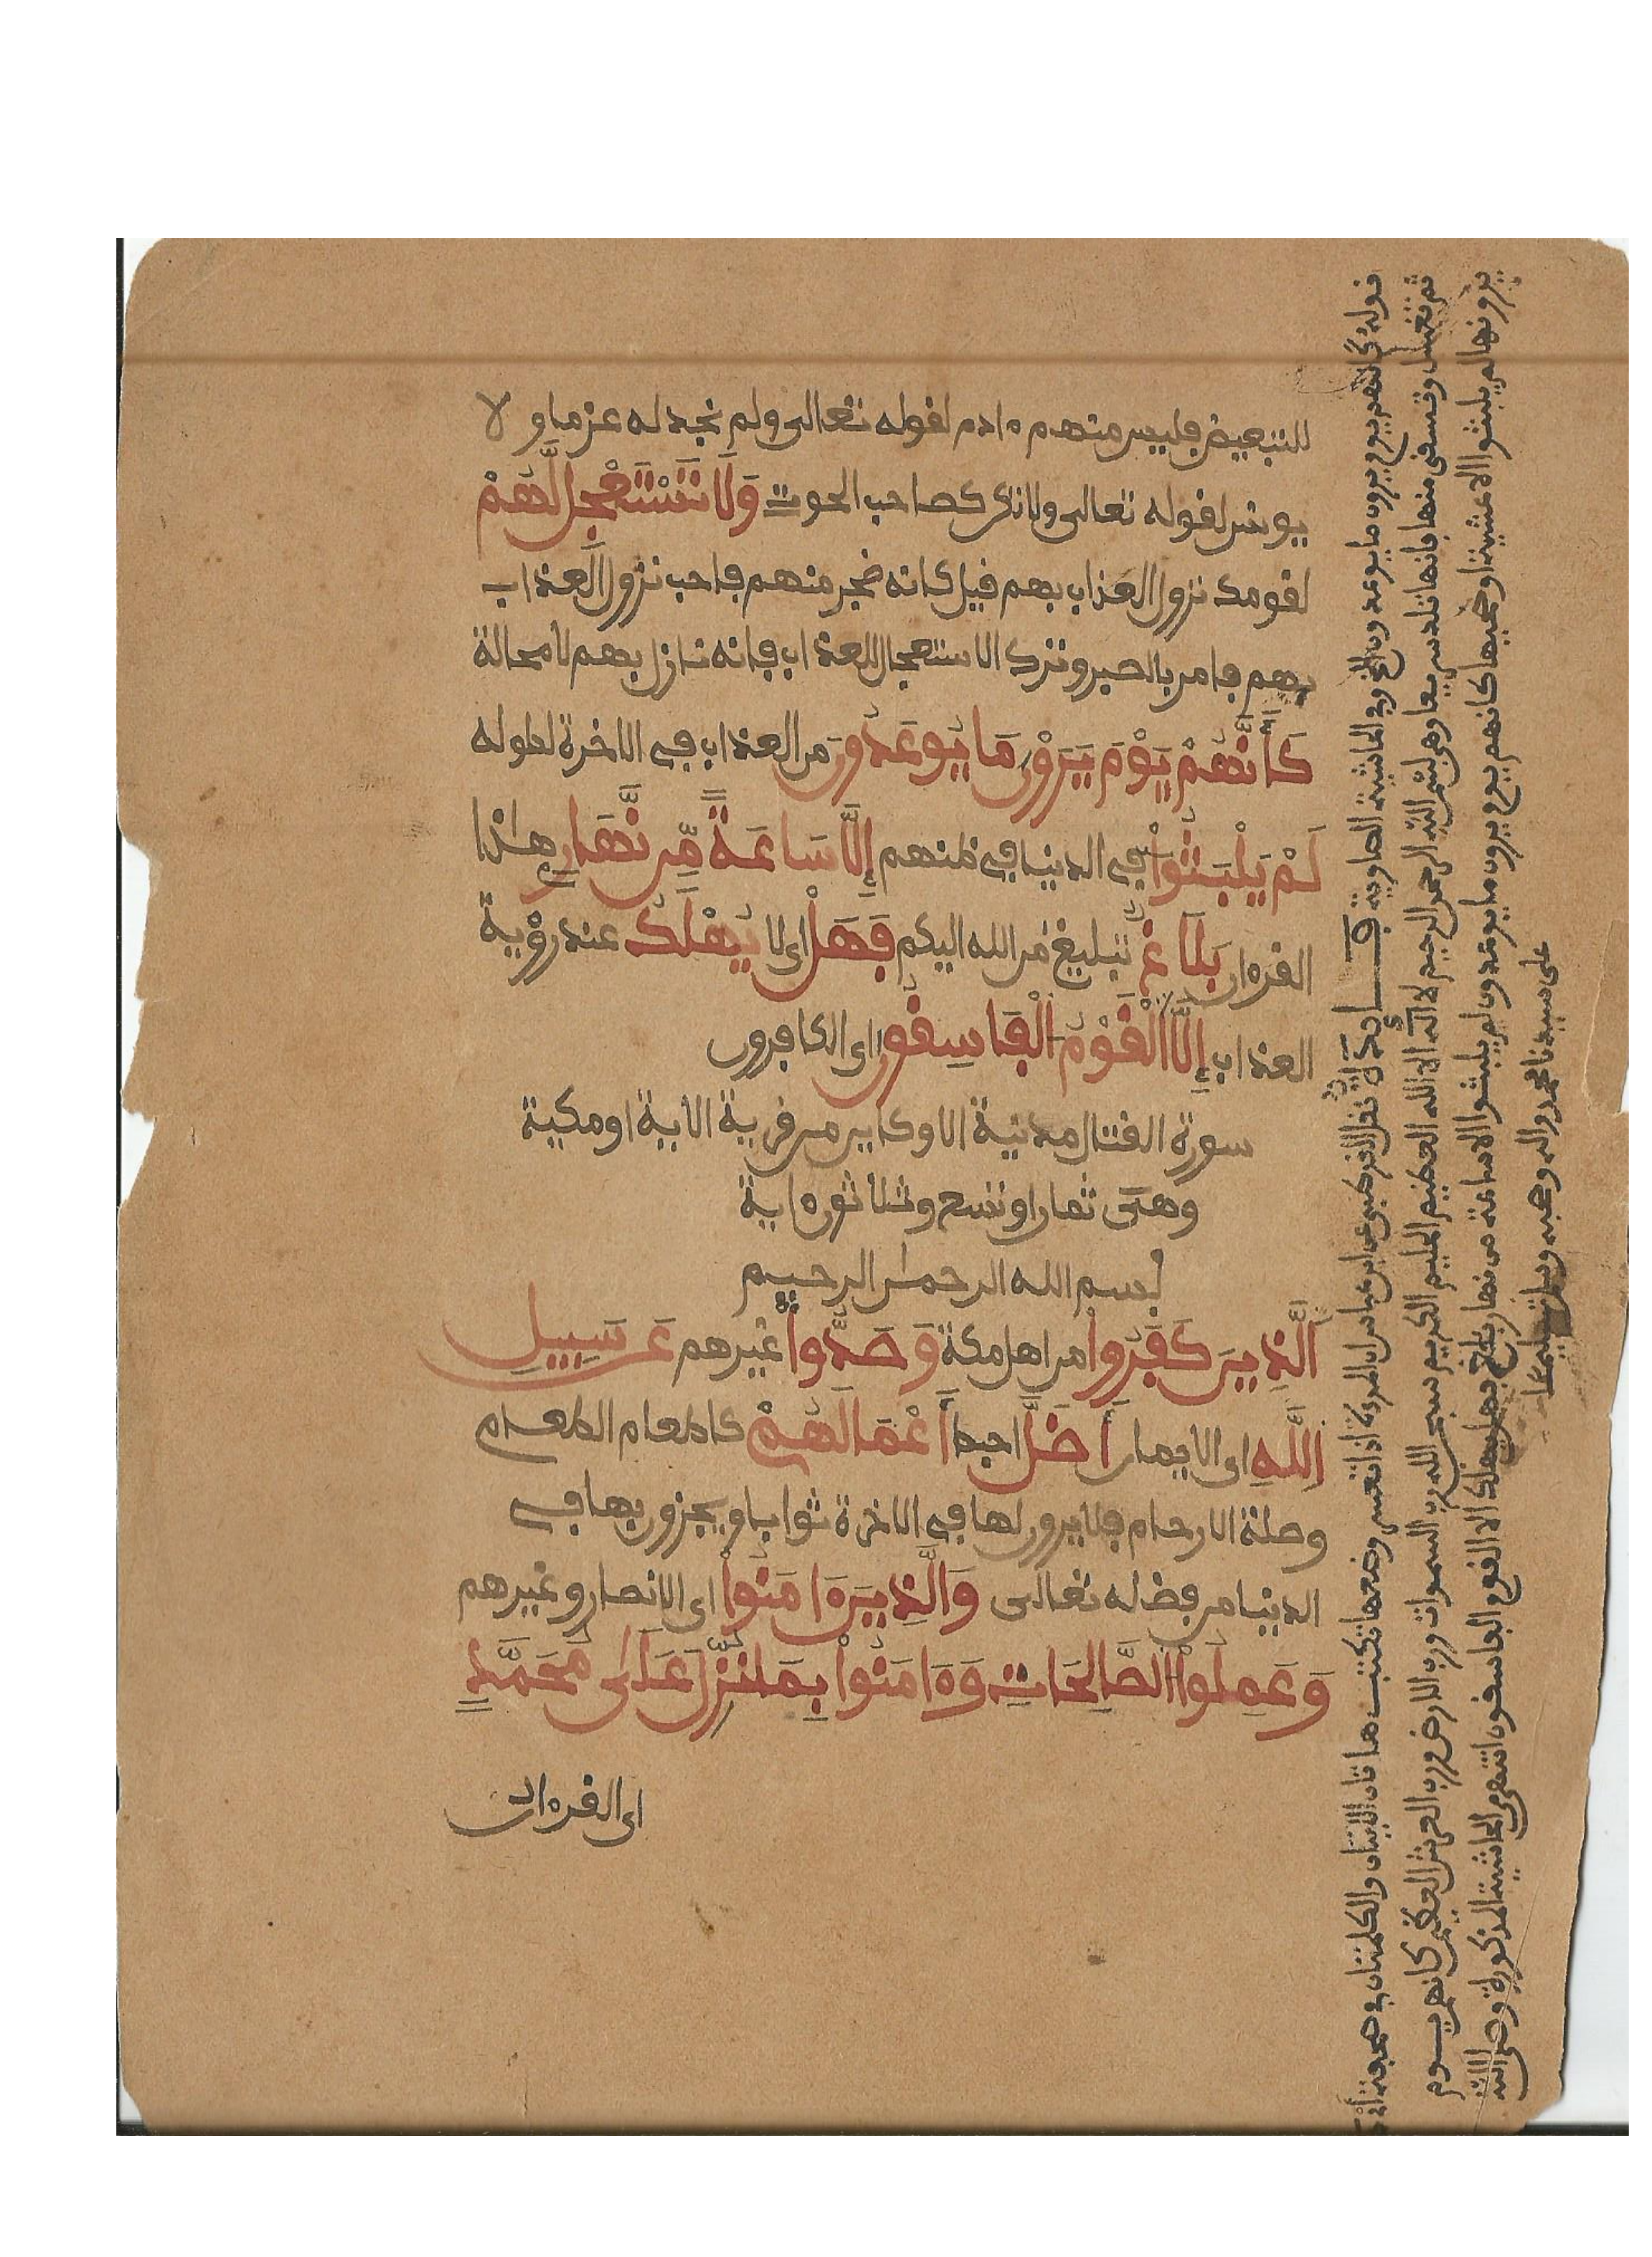 للتبعيض فليس منهم ءادم لقوله تعالى ولم نجد له عزما ولا
يونس لقوله تعالى ولا تكن كصاحب الحوت وَلَا تَسْتَعْجِل لَّهُمْ
لقومك نزول العذاب بهم قيل كانه ضجر منهم فاحب نزول العذاب
بهم فامر بالصبر وترك الاستعجال للعذاب فانه نازل بهم لا محالة
كَأَنَّهُمْ يَوْمَ يَرَوْنَ مَا يُوعَدُونَ من العذاب في الاخرة لطوله
لَمْ يَلْبَثُواْ في الدنيا في ظنهم إِلَّا سَاعَةً مِّن نَّهَارٍ هذا
القرءان بَلَاغٌ تبليغ من الله اليكم فَهَلْ اى لا يُهْلَكُ عند رؤية
العذاب إِلَّا الْقَوْمُ الْفَاسِقُونَ اى الكافرون
سورة القتال مدنية الا وكاين من قرية الاية او مكية
وهى ثمان او تسع وثلاثون ءاية
بسم الله الرحمن الرحيم
الَّذِينَ كَفَرُواْ من اهل مكة وَصَدُّواْ غيرهم عَن سَبِيلِ
اللَّهِ اى الايمان أَضَلَّ احبط أَعْمَالَهُمْ كاطعام الطعام
وصلة الارحام فلا يرون لها في الاخرة ثوابا ويجزون بها في
الدنيا من فضله تعالى وَالَّذِينَ ءَامَنُواْ اى الانصار وغيرهم
وَعَمِلُواْ الصَّالِحَاتِ وَءَامَنُواْ بِمَا نُزِّلَ عَلَىٰ مُحَمَّدٍ
اى القرءان
قوله كانهم يوم يرون ما يوعدون الخ وفى الحاشية الصاوية فـــائدة نقل القرطبى عن ابن عباس ان المرءة اذا تعسر وضعها تكتب هاتان الايتان والكلمتان في صحفة
ثم تغسل وتسقى منها فانها تلد سريعا وهى بسم الله الرحمن الرحيم لا اله الا الله العظيم الحليم الكريم سبحن الله رب السموات ورب الارض ورب العرش العظيم كانهم يــوم
يرونها لم يلبثوا الا عشية او ضحيها كانهم يوم يرون ما يوعدون لم يلبثوا الا ساعة من نهار بلاغ فهل يهلك الا القوم الفاسقون انتهى من الحاشية المذكورة وصلى الله
على سيدنا محمد واله وصحبه وسلم تسليما